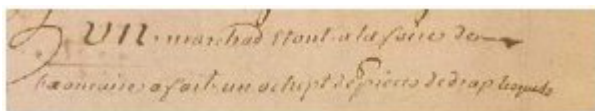 UN marchad Etant a la foire de
a fait un achapt de pieces de drap lesquels